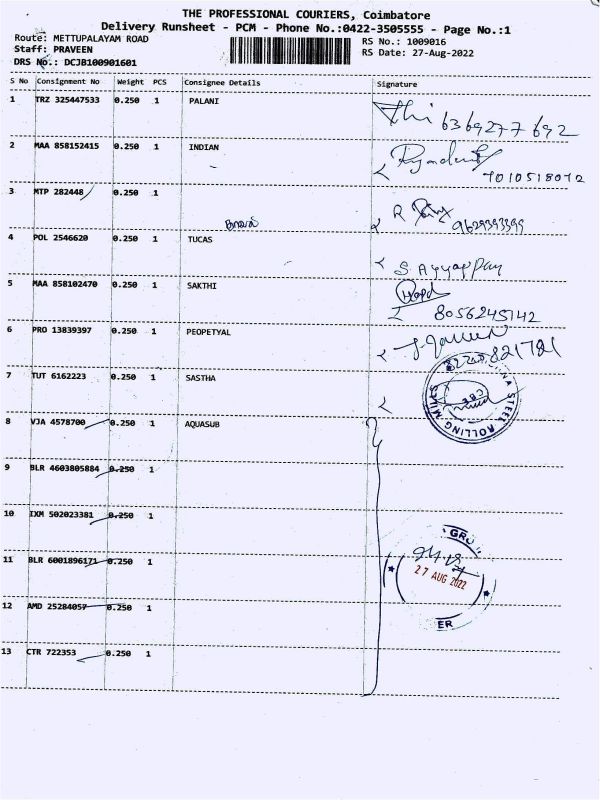 THE PROFESSIONAL COURIERS, Coimbatore
Delivery Runsheet - PCM - Phone No.:0422-3505555 - Page No.:1
Route: METTUPALAYAM ROAD
RS No.: 1009016
Staff: PRAVEEN
RS Date: 27-Aug-2022
DRS No.: DCJB100901601
S No Consignment No Weight PCS Consignee Details Signature
1 TRZ 325447533 0.250 1 PALANI
6369277692
2 MAA 858152415 0.250 1 INDIAN
7010518072
3 MTP 282448 0.250 1
R
9629393399
4 POL 2546620 0.250 1 TUCAS
S. Ayyappan
5 MAA 858102470 0.250 1 SAKTHI
8056245142
6 PRO 13839397 0.250 1 PEOPETYAL
7 TUT 6162223 0.250 1 SASTHA
STEEL ROLLING MILLS
CBE
8 VJA 4578700 0.250 1 AQUASUB
9 BLR 4603805884 0.250 1
10 IXM 502023381 0.250 1
GRO
11 BLR 6001896171 0.250 1
27 AUG 2022
12 AMD 25284057 0.250 1
ER
13 CTR 722353 0.250 1